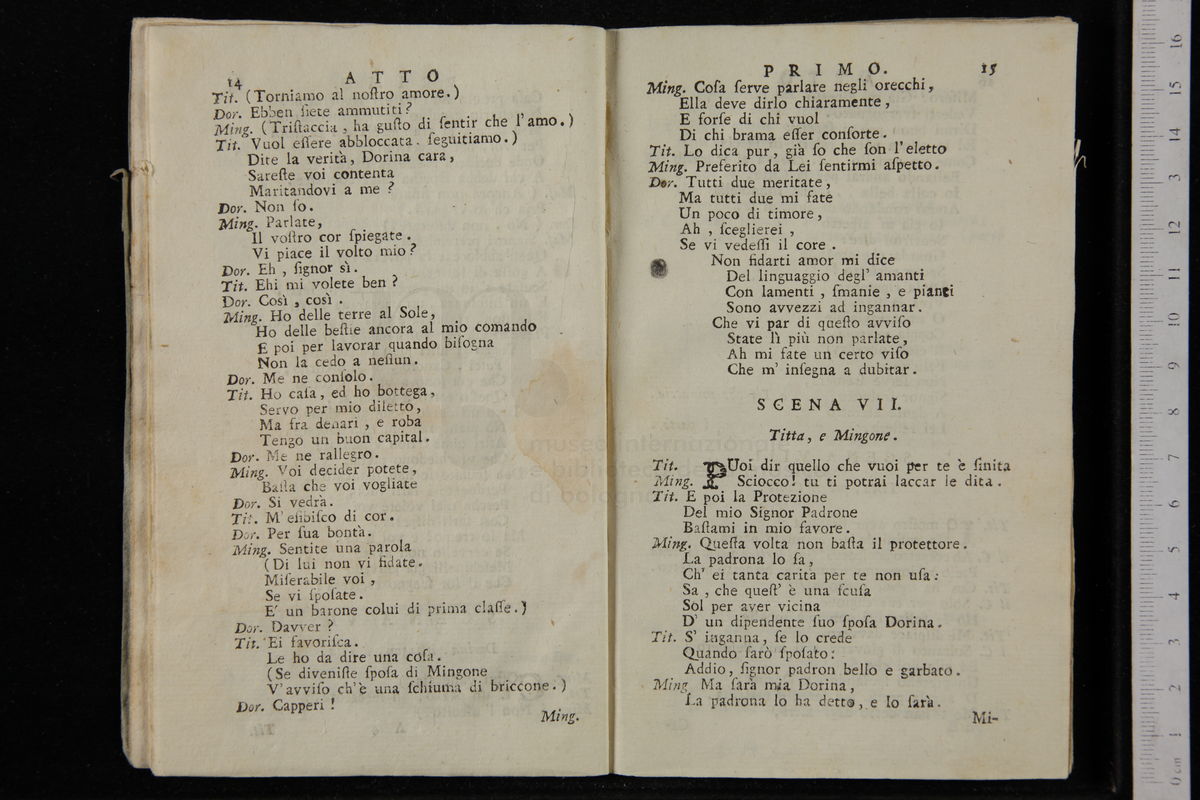 14 ATTO
Tit. (Torniamo al noſtro amore.)
Dor. Ebben ſiete ammutiti?
Ming. (Triſtaccia, ha guſto di ſentir che l'amo.)
Tit. Vuol eſſere abbloccata. ſeguitiamo.)
Dite la verità, Dorina cara,
Sareſte voi contenta
Maritandovi a me?
Dor. Non ſo.
Ming. Parlate,
Il voſtro cor ſpiegate.
Vi piace il volto mio?
Dor. Eh, ſignor sì.
Tit. Ehi mi volete ben?
Dor. Così, così.
Ming. Ho delle terre al Sole,
Ho delle beſtie ancora al mio comando
E poi per lavorar quando biſogna
Non la cedo a neſſun.
Dor. Me ne conſolo.
Tit. Ho caſa, ed ho bottega,
Servo per mio diletto,
Ma fra denari, e roba
Tengo un buon capital.
Dor. Me ne rallegro.
Ming. Voi decider potete,
Baſta che voi vogliate
Dor. Si vedrà.
Tit. M'eſibiſco di cor.
Dor. Per ſua bontà.
Ming. Sentite una parola
(Di lui non vi fidate.
Miſerabile voi,
Se vi ſpoſate.
E' un barone colui di prima claſſe.)
Dor. Davver?
Tit. Ei favoriſca.
Le ho da dire una coſa.
(Se diveniſte ſpoſa di Mingone
V'avviſo ch'è una ſchiuma di briccone.)
Dor. Capperi!
Ming.
PRIMO. 15
Ming. Coſa ſerve parlare negli orecchi,
Ella deve dirlo chiaramente,
E forſe di chi vuol
Di chi brama eſſer conſorte.
Tit. Lo dica pur, già ſo che ſon l'eletto
Ming. Preferito da Lei ſentirmi aſpetto.
Dor. Tutti due meritate,
Ma tutti due mi fate
Un poco di timore,
Ah, ſceglierei,
Se vi vedeſſi il core.
Non fidarti amor mi dice
Del linguaggio degl' amanti
Con lamenti, ſmanie, e pianti
Sono avvezzi ad ingannar.
Che vi par di queſto avviſo
State lì più non parlate,
Ah mi fate un certo viſo
Che m' inſegna a dubitar.
SCENA VII.
Titta, e Mingone.
Tit. PUoi dir quello che vuoi per te è finita
Ming. Sciocco! tu ti potrai laccar le dita.
Tit. E poi la Protezione
Del mio Signor Padrone
Baſtami in mio favore.
Ming. Queſta volta non baſta il protettore.
La padrona lo ſa,
Ch' ei tanta carità per te non uſa:
Sa, che queſt' è una ſcuſa
Sol per aver vicina
D' un dipendente ſuo ſpoſa Dorina.
Tit. S' inganna, ſe lo crede
Quando ſarò ſpoſato:
Addio, ſignor padron bello e garbato.
Ming Ma ſarà mia Dorina,
La padrona lo ha detto, e lo ſarà.
Mi-
museo internazionale
e biblioteca della
di bologna
0 cm 1 2 3 4 5 6 7 8 9 10 11 12 13 14 15 16